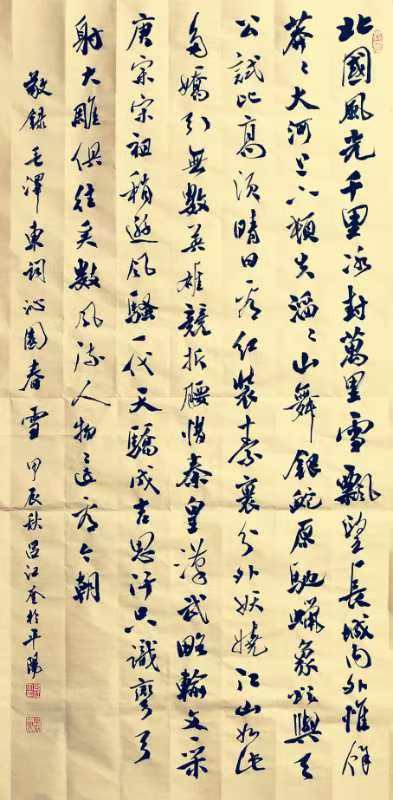 北國風光千里冰封萬里雪飄望長城內外惟餘
莽々大河上下頓失滔々山舞銀蛇原馳蠟象欲與天
公試比高須晴日看紅裝素裹分外妖嬈江山如此
多嬌引無數英雄競折腰惜秦皇漢武略輸文采
唐宗宋祖稍遜風騷一代天驕成吉思汗只識彎弓
射大雕俱往矣數風流人物還看今朝
敬錄毛澤東詞沁園春雪 甲辰秋呂江奎於平陽